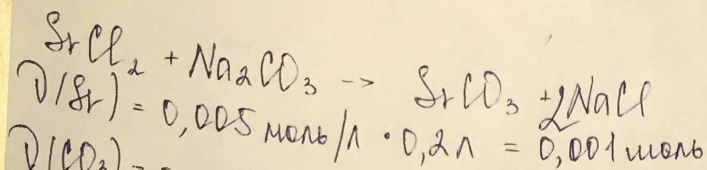 SrCl₂ + Na₂CO₃ → SrCO₃ + 2NaCl
ν(Sr) = 0,005 моль/л · 0,2л = 0,001 моль
ν(CO₃) =